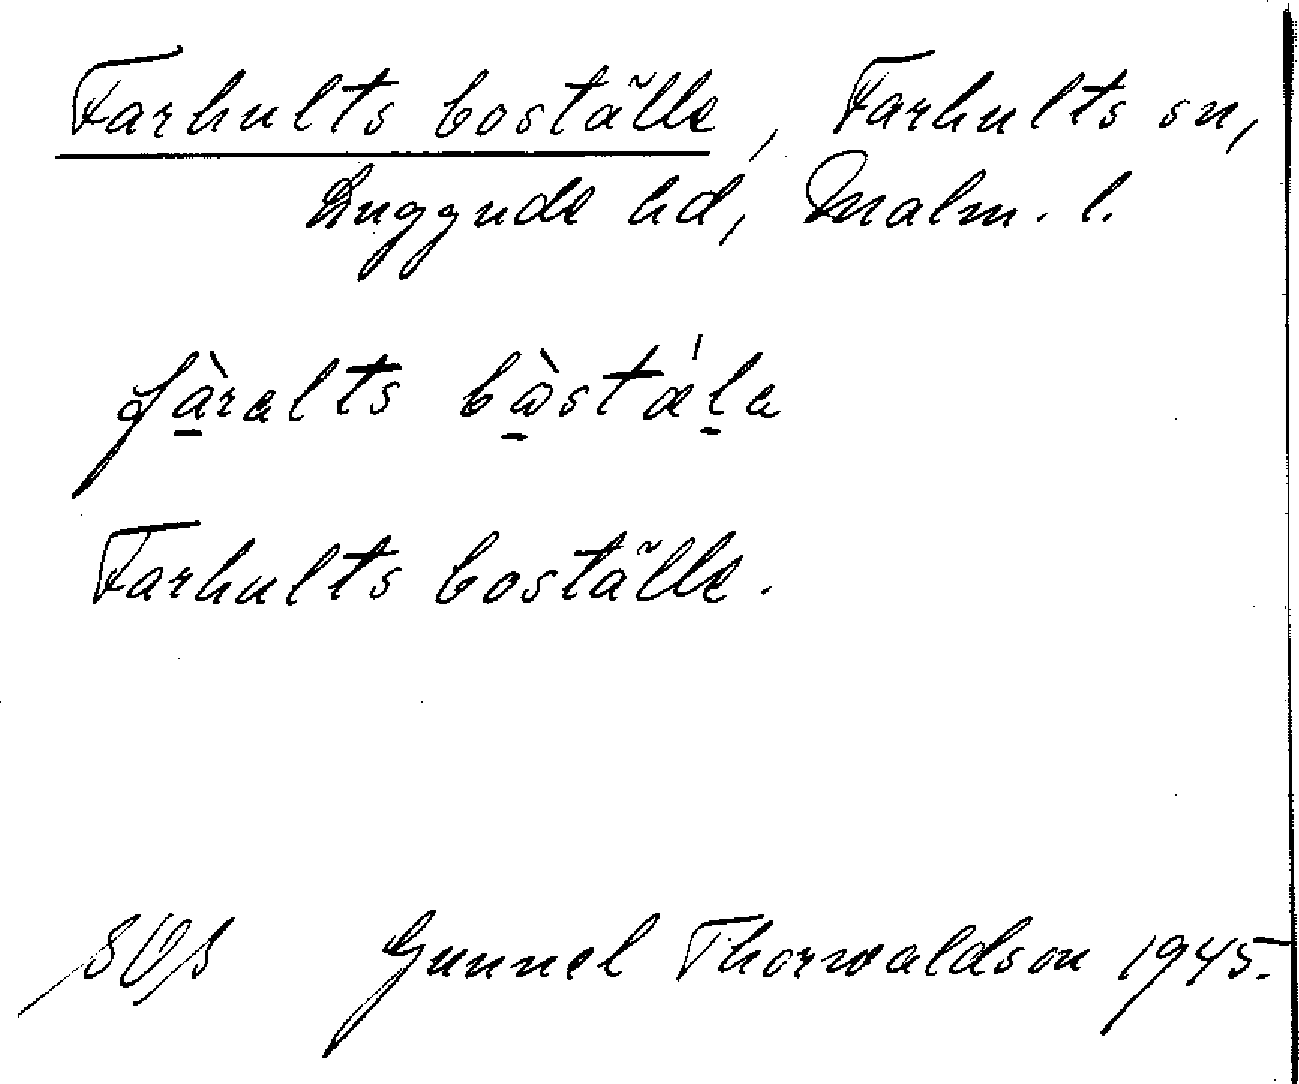 Farhults boställe, Farhults sn,
Luggude hd, Malm. l.
fàralts bòstála
Farhults boställe.
Gunnel Thorwaldson 1945.